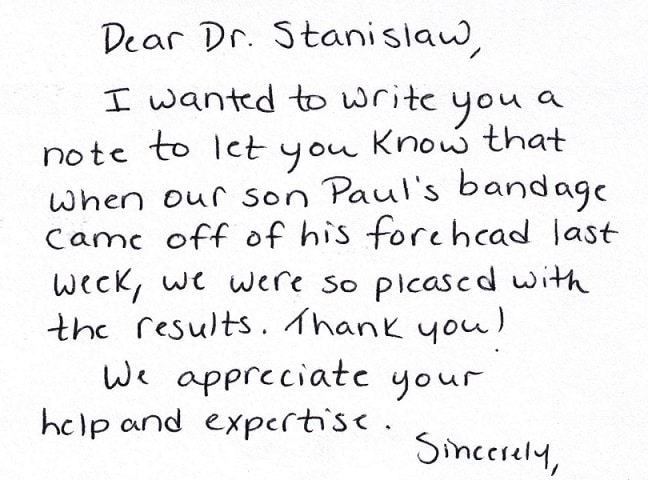 Dear Dr. Stanislaw,
I wanted to write you a
note to let you know that
when our son Paul's bandage
came off of his forehead last
week, we were so pleased with
the results. Thank you!
We appreciate your
help and expertise.
Sincerely,